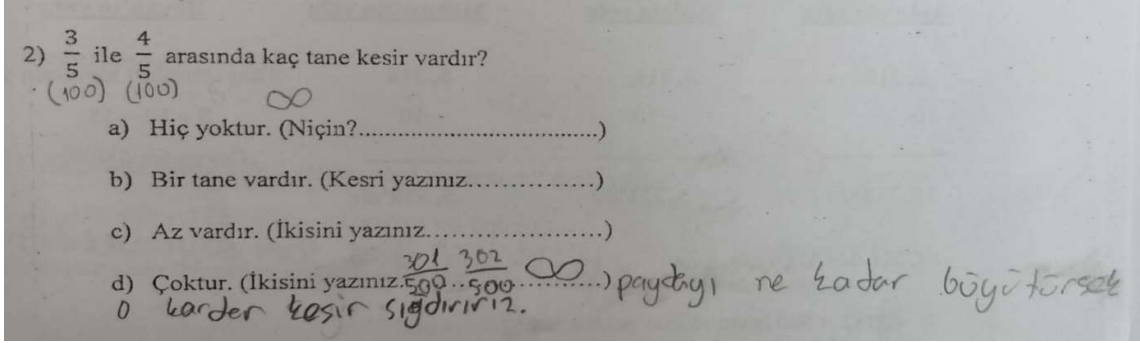 2) 3/5 ile 4/5 arasında kaç tane kesir vardır?
(100) (100) ∞
a) Hiç yoktur. (Niçin?....................................)
b) Bir tane vardır. (Kesri yazınız................)
c) Az vardır. (İkisini yazınız......................)
d) Çoktur. (İkisini yazınız. 301/500 .. 302/500 ∞ ..........) paydayı ne kadar büyütürsek
o karder kesir sığdırırız.